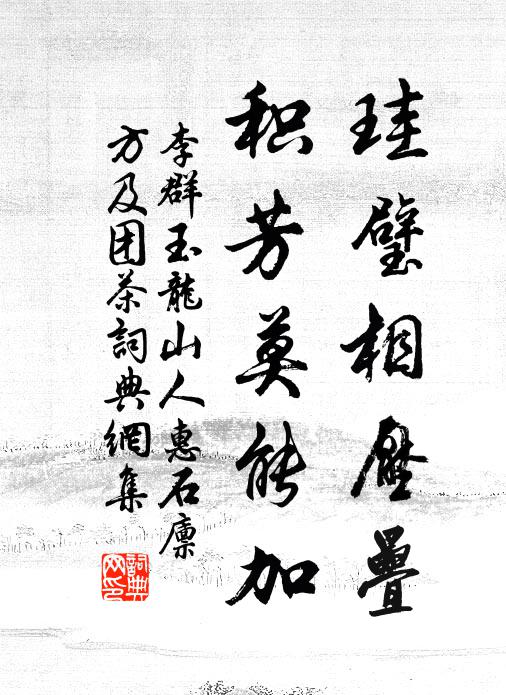 珪璧相壓疊
积芳莫能加
李群玉龍山人惠石廪
方及团茶詞典網集
詞典網印